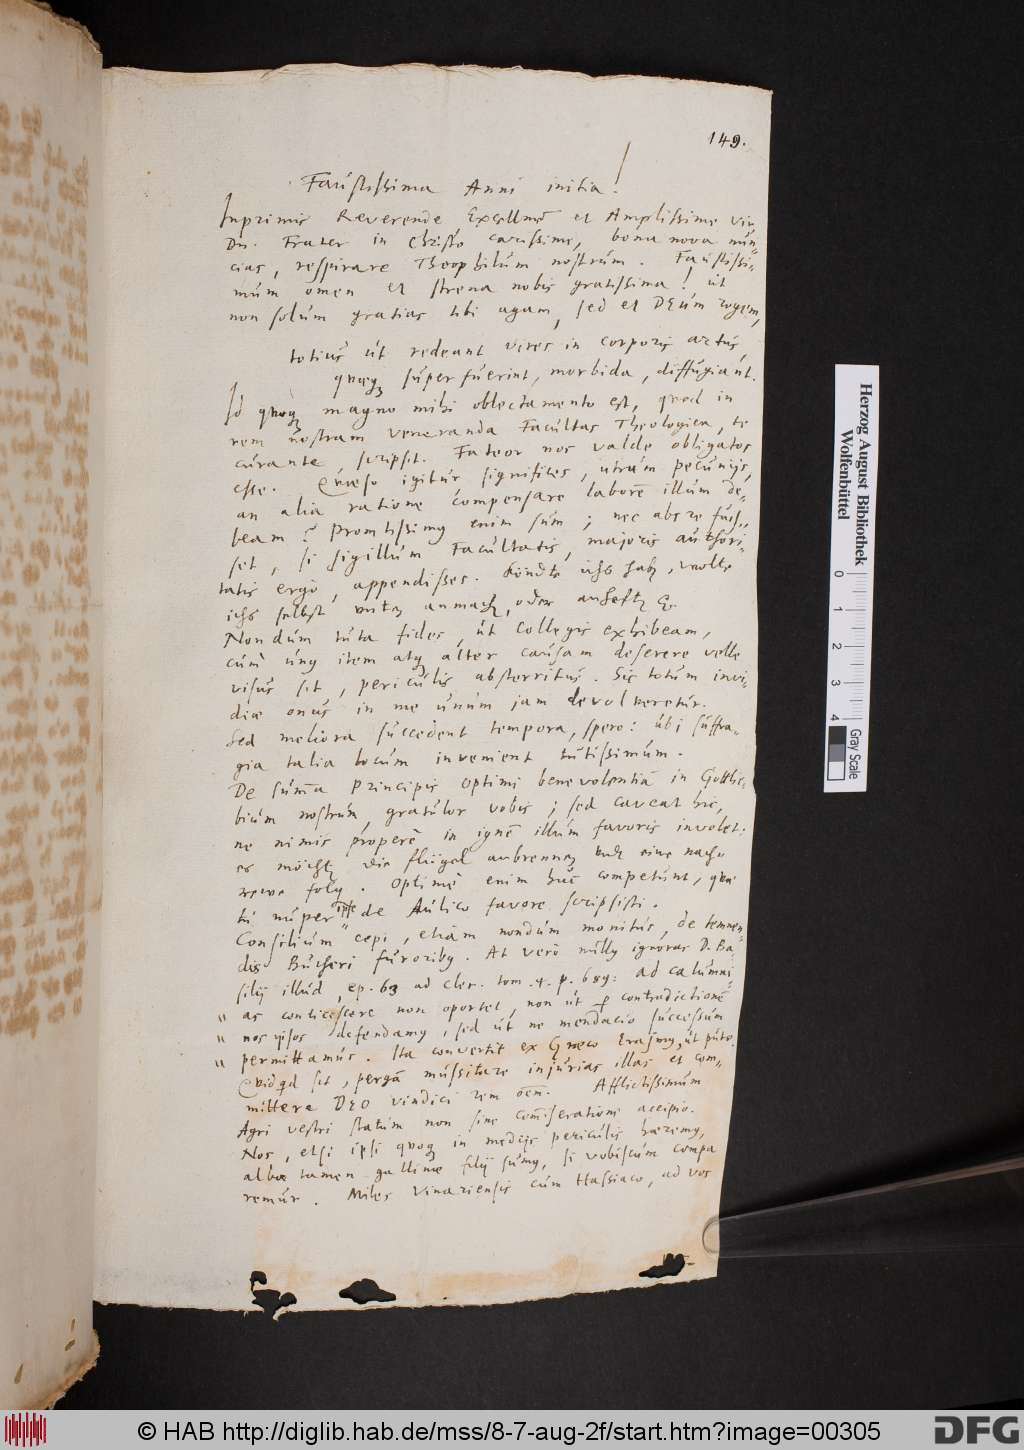 149.
Faustissima Anni initia!
Inprimis Reverende Excellme et Amplissime Vir
Dn. Frater in Christo carissime, bona nova nun-
cias, respirare Theophilum nostrum. Faustissi-
mum omen et strena nobis gratissima! ut
non solum gratias tibi agam, sed et DEum rogem,
totius ut redeant vires in corporis artus,
quæq superfuerint, morbida, diffugiant.
Id quoq magno mihi oblectamento est, quod in
rem nostram veneranda Facultas Theologica, te
curante, scripsit. Fateor nos valde obligatos
esse. Quæso igitur significes, utrum pecuniis,
an alia ratione compensare laborē illum de-
beam? Promtissimg enim sum; nec abs re fuis-
set, si sigillum Facultatis, majoris authori-
tatis ergò, appendisses. Köndte ichs habē, wolte
ichs selbst untē anmachē, oder anheftē
Nondum tuta fides, ut Collegis exhibeam,
cum ung item atq alter causam deserere velle
visus sit, periculis absterritus. Sic totum invi-
diæ onus in me unum jam devolveretur.
Sed meliora succedent tempora, spero: ubi suffra-
gia talia locum invenient tutissimum.
De summa Principis Optimi benevolentiâ in Gottlie-
bium nostrum, gratulor vobis; sed caveat hic,
ne nimis properè in ignē illum favoris involet.
es möchtē die flügel anbrennē undt eine nach-
rewe folgē. Optimè enim huc competunt, quæ
tu nuper ipse de Aulico favore scripsisti.
Consilium cepi, etiam nondum monitus, de temnen-
dis Bücheri furoribg. At verò nullg ignoras D. Ba-
silii illud, ep. 63 ad Cler. tom. 4. p. 689: ad calumni-
" as conticescere non oportet, non ut p contradictionē
" nos ipsos defendamg, sed ut ne mendacio successum
" permittamus. Ita convertit ex Græco Erasmg, ut puto.
Quidqd sit, pergā mussitare injurias illas et com-
mittere DEO vindici rem oēm. Afflictissimum
Agri vestri statum non sine comiseratione accipio.
Nos, etsi ipsi quoq in mediis periculis hæremg,
albæ tamen gallinæ filii sumg, si vobiscum compa
remur. Miles Vinariensis cum Hassiaco, ad vos
Herzog August Bibliothek
Wolfenbüttel
0 1 2 3 4
Gray Scale
© HAB http://diglib.hab.de/mss/8-7-aug-2f/start.htm?image=00305
DFG